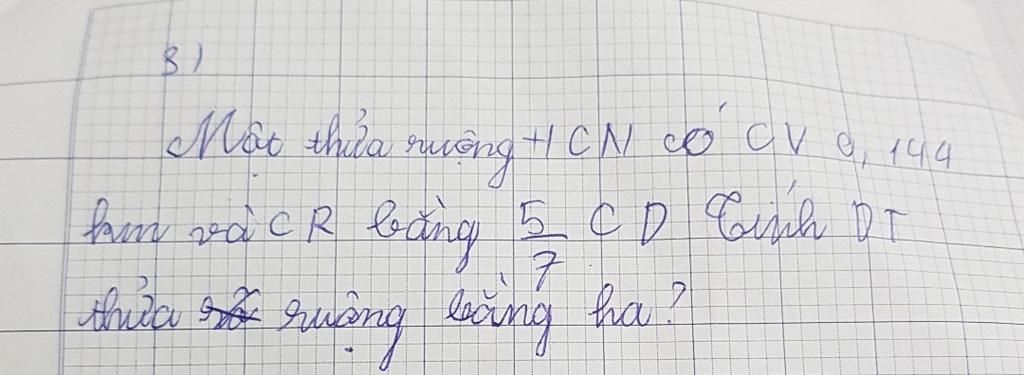 3)
Một thửa ruộng HCN có CV 0,144
km và CR bằng 5/7 CD Tính DT
thửa ruộng bằng ha?